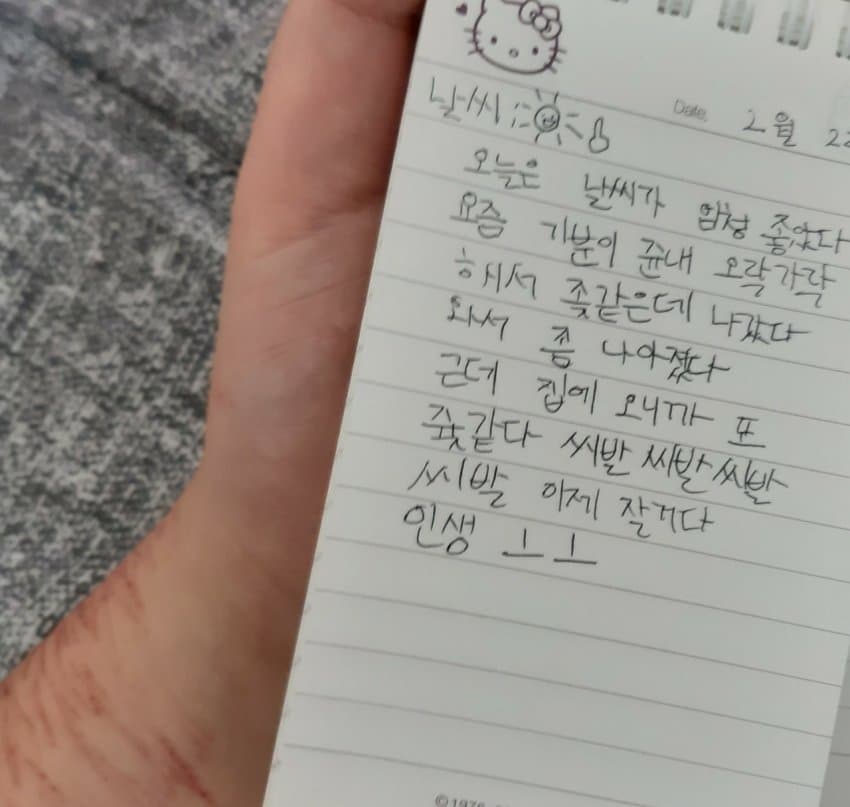 Date.
2월 22
날씨
오늘은 날씨가 엄청 좋았다
요즘 기분이 쥰내 오락가락
해서 좆같은데 나갔다
와서 좀 나아졌다
근데 집에 오니까 또
좆같다 씨발 씨발 씨발
씨발 이제 잘거다
인생 ㅗㅗ